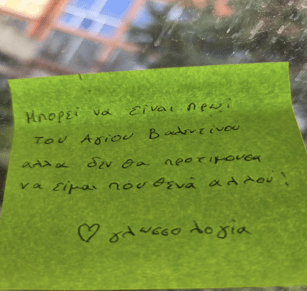 Μπορεί να είναι πρωί
του Αγίου Βαλεντίνου
αλλα δεν θα προτιμουσα
να είμαι που θενά αλλού!
♡ γλωσσολογία